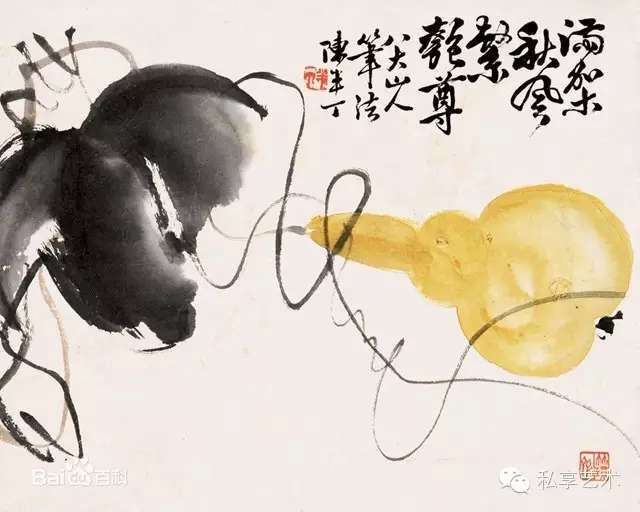 滿架
秋風
繫
匏尊
八大山人
筆法
陳半丁
Bai百科
私享艺术